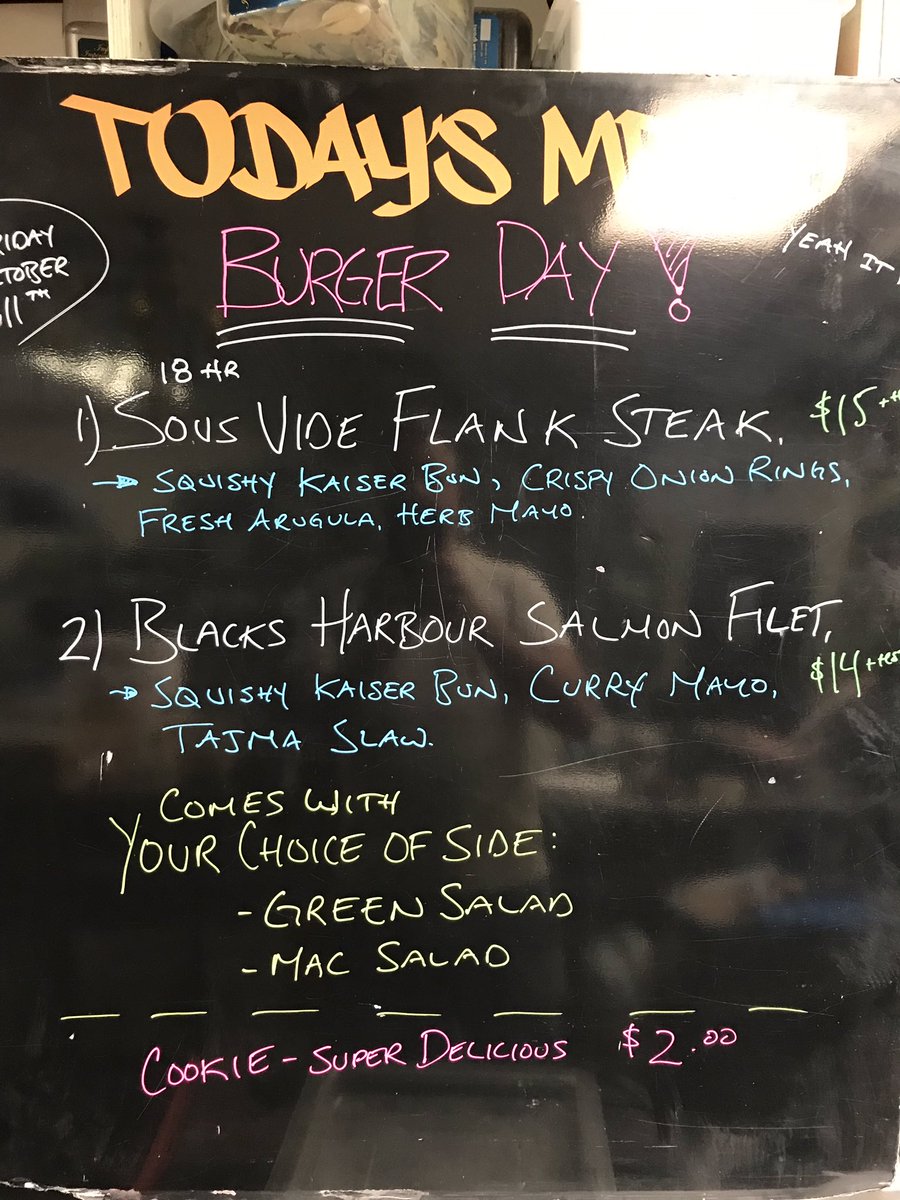 TODAY'S
BURGER DAY!
YEAH IT
RIDAY
CTOBER
11TH
18 HR
1) SOUS VIDE FLANK STEAK. $15
→ SQUISHY KAISER BUN, CRISPY ONION RINGS,
FRESH ARUGULA, HERB MAYO.
2) BLACKS HARBOUR SALMON FILET, $14
→ SQUISHY KAISER BUN, CURRY MAYO,
TAJMA SLAW.
COMES WITH
YOUR CHOICE OF SIDE:
- GREEN SALAD
- MAC SALAD
COOKIE - SUPER DELICIOUS $2.00